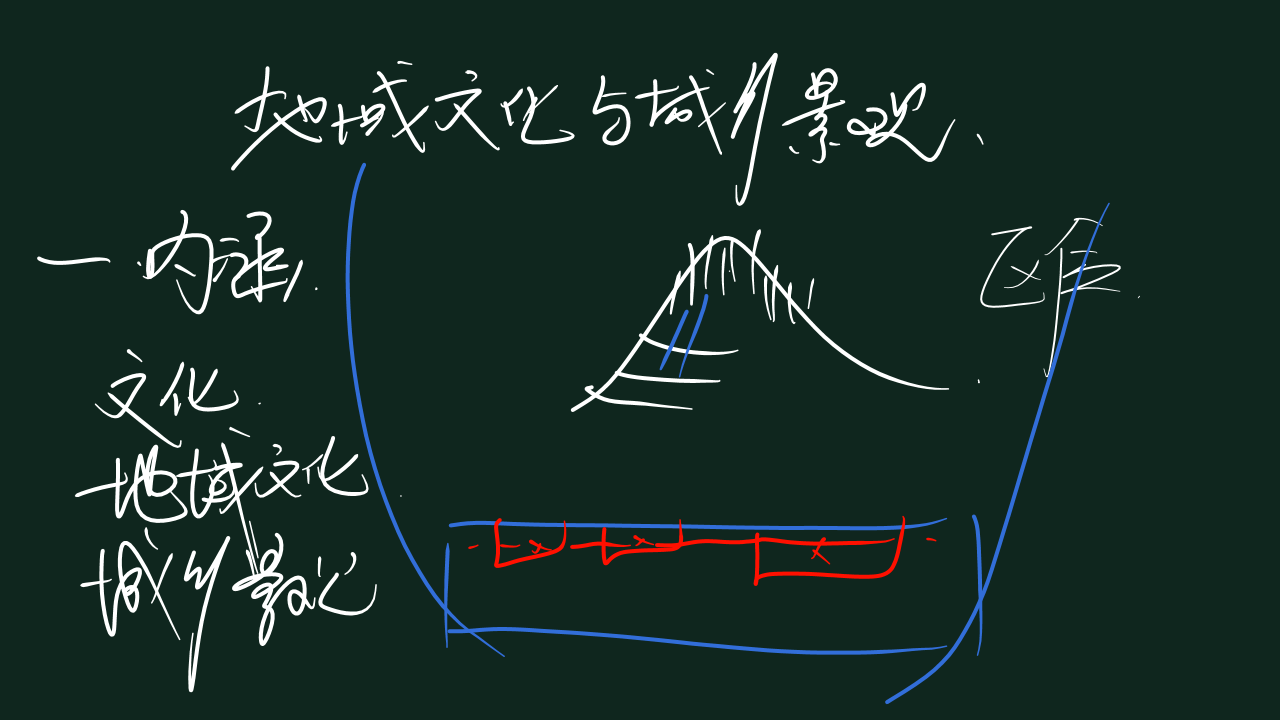 地域文化与城乡景观.
一.内涵,
区位.
文化.
地域文化.
城乡景观